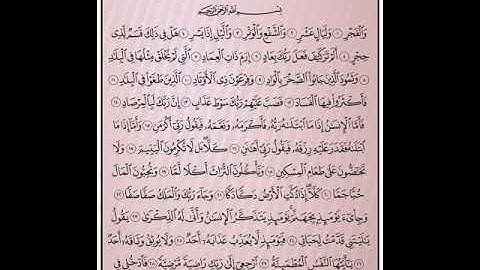 بِسْمِ اللَّهِ الرَّحْمَٰنِ الرَّحِيمِ
وَالْفَجْرِ ١ وَلَيَالٍ عَشْرٍ ٢ وَالشَّفْعِ وَالْوَتْرِ ٣ وَاللَّيْلِ إِذَا يَسْرِ ٤ هَلْ فِي ذَٰلِكَ قَسَمٌ لِّذِي
حِجْرٍ ٥ أَلَمْ تَرَ كَيْفَ فَعَلَ رَبُّكَ بِعَادٍ ٦ إِرَمَ ذَاتِ الْعِمَادِ ٧ الَّتِي لَمْ يُخْلَقْ مِثْلُهَا فِي الْبِلَادِ
٨ وَثَمُودَ الَّذِينَ جَابُوا الصَّخْرَ بِالْوَادِ ٩ وَفِرْعَوْنَ ذِي الْأَوْتَادِ ١٠ الَّذِينَ طَغَوْا فِي الْبِلَادِ ١١
فَأَكْثَرُوا فِيهَا الْفَسَادَ ١٢ فَصَبَّ عَلَيْهِمْ رَبُّكَ سَوْطَ عَذَابٍ ١٣ إِنَّ رَبَّكَ لَبِالْمِرْصَادِ ١٤
فَأَمَّا الْإِنسَانُ إِذَا مَا ابْتَلَاهُ رَبُّهُ فَأَكْرَمَهُ وَنَعَّمَهُ فَيَقُولُ رَبِّي أَكْرَمَنِ ١٥ وَأَمَّا إِذَا مَا
ابْتَلَاهُ فَقَدَرَ عَلَيْهِ رِزْقَهُ فَيَقُولُ رَبِّي أَهَانَنِ ١٦ كَلَّا بَل لَّا تُكْرِمُونَ الْيَتِيمَ ١٧ وَلَا
تَحَاضُّونَ عَلَىٰ طَعَامِ الْمِسْكِينِ ١٨ وَتَأْكُلُونَ التُّرَاثَ أَكْلًا لَّمًّا ١٩ وَتُحِبُّونَ الْمَالَ
حُبًّا جَمًّا ٢٠ كَلَّا إِذَا دُكَّتِ الْأَرْضُ دَكًّا دَكًّا ٢١ وَجَاءَ رَبُّكَ وَالْمَلَكُ صَفًّا صَفًّا ٢٢
وَجِيءَ يَوْمَئِذٍ بِجَهَنَّمَ يَوْمَئِذٍ يَتَذَكَّرُ الْإِنسَانُ وَأَنَّىٰ لَهُ الذِّكْرَىٰ ٢٣ يَقُولُ
يَا لَيْتَنِي قَدَّمْتُ لِحَيَاتِي ٢٤ فَيَوْمَئِذٍ لَّا يُعَذِّبُ عَذَابَهُ أَحَدٌ ٢٥ وَلَا يُوثِقُ وَثَاقَهُ أَحَدٌ
٢٦ يَا أَيَّتُهَا النَّفْسُ الْمُطْمَئِنَّةُ ٢٧ ارْجِعِي إِلَىٰ رَبِّكِ رَاضِيَةً مَّرْضِيَّةً ٢٨ فَادْخُلِي فِي